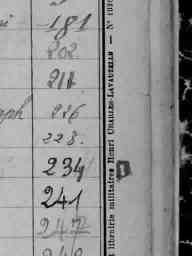 181
202
211
aph 226
228.
234
241
247
librairie militaires Henri CHARLES-LAVAUZELLE — N°